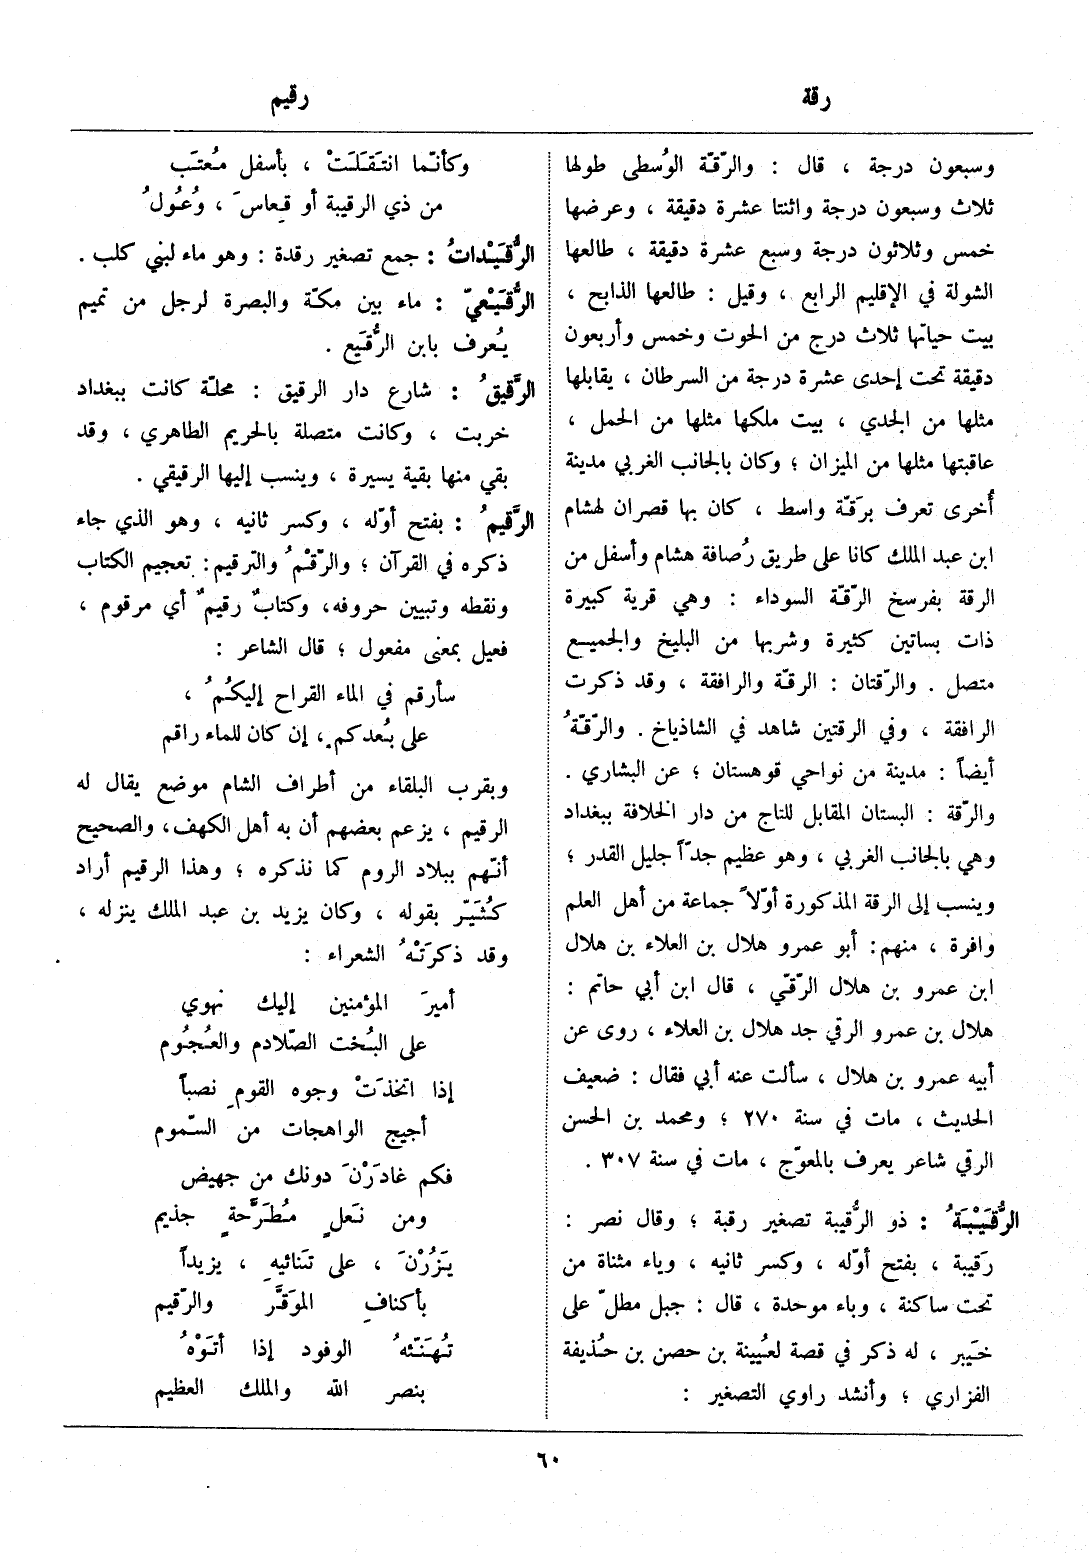 رقة
رقيم
وسبعون درجة ، قال : والرّقّة الوُسطى طولها
ثلاث وسبعون درجة واثنتا عشرة دقيقة ، وعرضها
خمس وثلاثون درجة وسبع عشرة دقيقة ، طالعها
الشولة في الإقليم الرابع ، وقيل : طالعها الذابح ،
بيت حياتها ثلاث درج من الحوت وخمس وأربعون
دقيقة تحت إحدى عشرة درجة من السرطان ، يقابلها
مثلها من الجدي ، بيت ملكها مثلها من الحمل ،
عاقبتها مثلها من الميزان ؛ وكان بالجانب الغربي مدينة
أُخرى تعرف برَقّة واسط ، كان بها قصران لهشام
ابن عبد الملك كانا على طريق رُصافة هشام وأسفل من
الرقة بفرسخ الرّقّة السوداء : وهي قرية كبيرة
ذات بساتين كثيرة وشربها من البليخ والجميع
متصل . والرّقتان : الرقّة والرافقة ، وقد ذكرت
الرافقة ، وفي الرقتين شاهد في الشاذياخ . والرّقّةُ
أيضاً : مدينة من نواحي قوهستان ؛ عن البشاري .
والرّقة : البستان المقابل للتاج من دار الخلافة ببغداد
وهي بالجانب الغربي ، وهو عظيم جدّاً جليل القدر ؛
وينسب إلى الرقة المذكورة أوّلاً جماعة من أهل العلم
وافرة ، منهم : أبو عمرو هلال بن العلاء بن هلال
ابن عمرو بن هلال الرّقّي ، قال ابن أبي حاتم :
هلال بن عمرو الرقي جد هلال بن العلاء ، روى عن
أبيه عمرو بن هلال ، سألت عنه أبي فقال : ضعيف
الحديث ، مات في سنة ٢٧٠ ؛ ومحمد بن الحسن
الرقي شاعر يعرف بالمعوّج ، مات في سنة ٣٠٧ .
الرُّقَيْبَةُ : ذو الرُّقيبة تصغير رقبة ؛ وقال نصر :
رَقيبة ، بفتح أوّله ، وكسر ثانيه ، وياء مثناة من
تحت ساكنة ، وباء موحدة ، قال : جبل مطلّ على
خيَبر ، له ذكر في قصة لعُيينة بن حصن بن حُذيفة
الفزاري ؛ وأنشد راوي التصغير :
وكأنّما انتَقَلَتْ ، بأسفل مُعتَب
من ذي الرقيبة أو قِعاسَ ، وُعُولُ
الرُّقَيْداتُ : جمع تصغير رقدة : وهو ماء لبني كلب .
الرُّقَيْعيّ : ماء بين مكّة والبصرة لرجل من تميم
يُعرف بابن الرُّقَيع .
الرَّقيقُ : شارع دار الرقيق : محلّة كانت ببغداد
خربت ، وكانت متصلة بالحريم الطاهري ، وقد
بقي منها بقية يسيرة ، وينسب إليها الرقيقي .
الرَّقيمُ : بفتح أوّله ، وكسر ثانيه ، وهو الذي جاء
ذكره في القرآن ؛ والرّقْمُ والترقيم : تعجيم الكتاب
ونقطه وتبيين حروفه، وكتابٌ رقيمٌ أي مرقوم ،
فعيل بمعنى مفعول ؛ قال الشاعر :
سأرقم في الماء القراح إليكُمُ ،
على بُعدكم ، إن كان للماء راقم
وبقرب البلقاء من أطراف الشام موضع يقال له
الرقيم ، يزعم بعضهم أن به أهل الكهف، والصحيح
أنّهم ببلاد الروم كما نذكره ؛ وهذا الرقيم أراد
كُثَيّر بقوله ، وكان يزيد بن عبد الملك ينزله ،
وقد ذكرَتْهُ الشعراء :
أميرَ المؤمنين إليك نهوي
على البُخت الصّلادم والعُجُوم
إذا اتخذَتْ وجوه القومِ نصباً
أجيج الواهجات من السّموم
فكم غادَرْنَ دونك من جهيض
ومن نَعلٍ مُطَرَّحةٍ جذيم
يَزُرْنَ ، على تَنائيهِ ، يزيداً
بأكنافِ الموَقَّر والرّقيم
تُهَنّئهُ الوفود إذا أتَوْهُ
بنصر الله والملك العظيم
٦٠